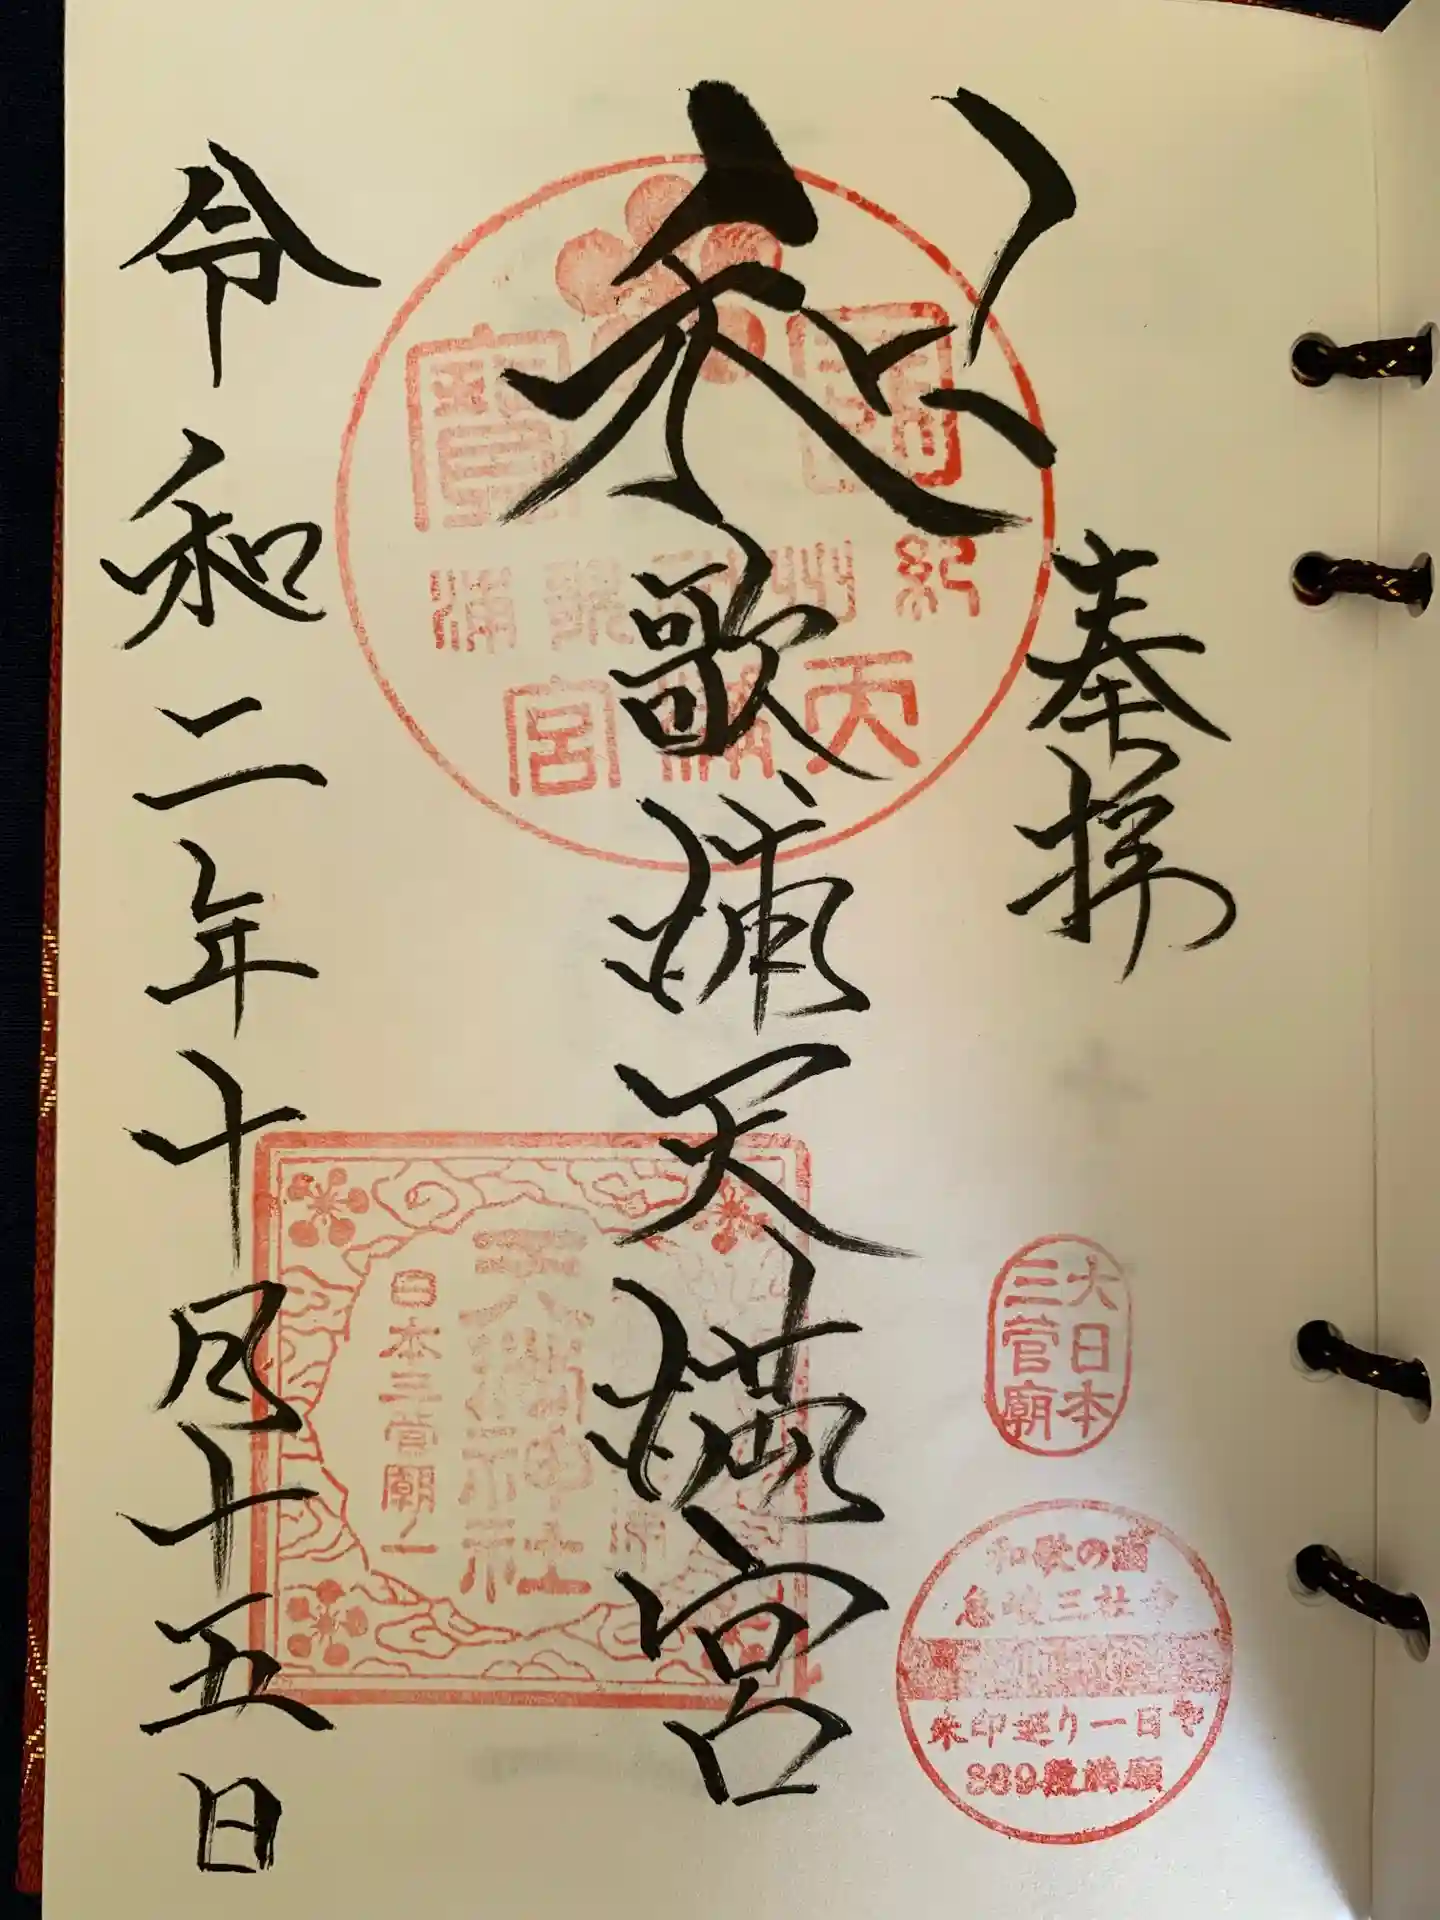 奉拝
和歌浦天満宮
令和二年十月十五日
紀州和歌浦
天満宮
大日本
三菅廟
天満神社
日本三菅廟一
和歌の浦
急峻三社寺
朱印巡り一日で
389段満願